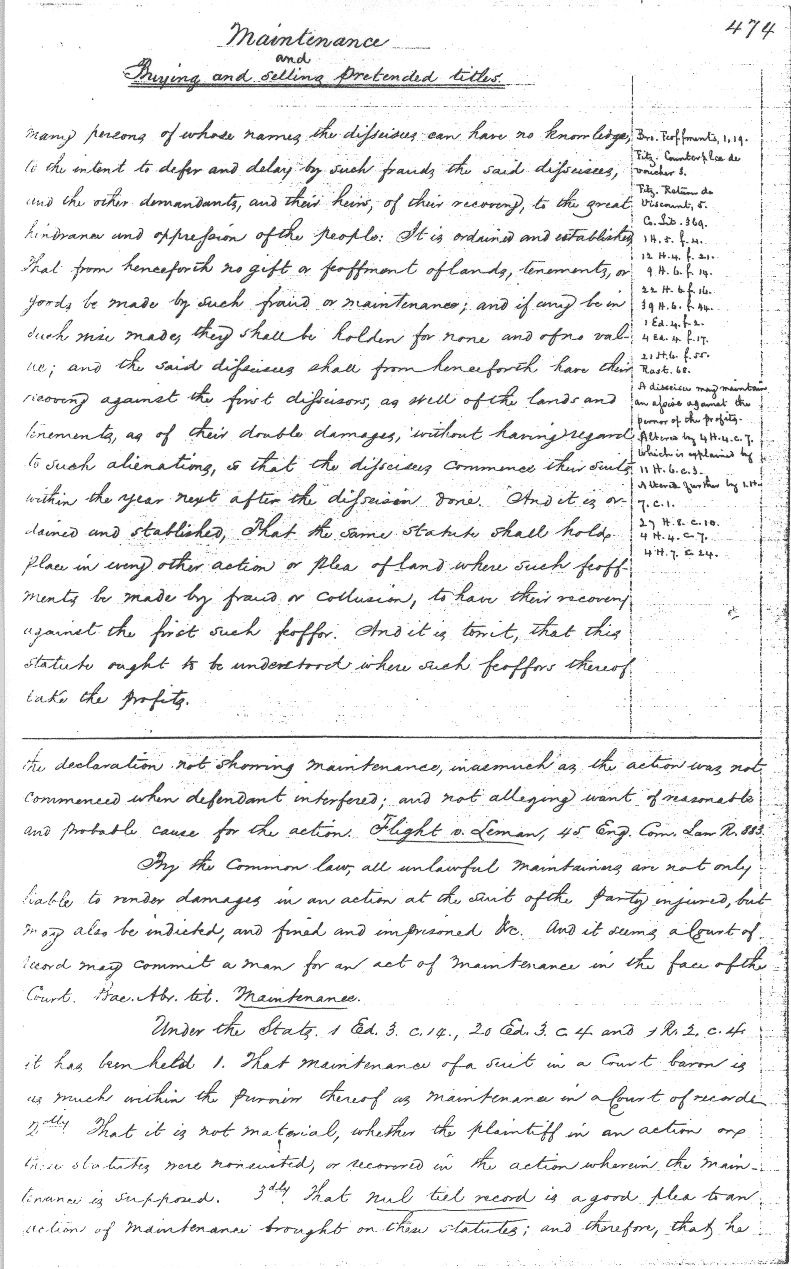 474
Maintenance
and
Buying and selling pretended titles.
many persons of whose names the disseisees can have no knowledge,
to the intent to defer and delay by such frauds the said disseisees,
and the other demandants, and their heirs, of their recovery, to the great
hindrance and oppression of the people: It is ordained and established
That from henceforth no gift or feoffment of lands, tenements, or
goods be made by such fraud or maintenance; and if any be in
such wise made, they shall be holden for none and of no val-
ue; and the said disseisees shall from henceforth have their
recovery against the first disseisors, as well of the lands and
tenements, as of their double damages, without having regard
to such alienations, so that the disseisees commence their suits
within the year next after the disseisin done. And it is or-
dained and stablished, That the same statute shall hold
place in every other action or plea of land where such feoff-
ments be made by fraud or collusion, to have their recovery
against the first such feoffor. And it is to wit, that this
statute ought to be understood where such feoffors thereof
take the profits.
Bro. Feoffments, 1, 19.
Fitz. Counterplea de
voucher 3.
Fitz. Retion de
Viscount, 5.
Co. Lit. 369.
1 H. 5. f. 4.
12 H. 4. f. 21.
9 H. 6. f. 14.
22 H. 6. f. 16.
39 H. 6. f. 44.
1 Ed. 4. f. 2.
4 Ed. 4. f. 17.
21 H. 6. f. 55.
Rast. 68.
A disseisee may maintain
an assise against the
pernor of the profits.
Altered by 4 H. 4. c. 7.
which is explained by
11 H. 6. c. 3.
Altered further by 1 H.
7. c. 1.
27 H. 8. c. 10.
4 H. 4. c. 7.
4 H. 7. c. 24.
the declaration not showing maintenance, inasmuch as the action was not
commenced when defendant interfered; and not alleging want of reasonable
and probable cause for the action. Flight v. Leman, 45 Eng. Com. Law R. 883.
By the common law, all unlawful maintainers are not only
liable to render damages in an action at the suit of the party injured, but
may also be indicted, and fined and imprisoned &c. And it seems a Court of
record may commit a man for an act of maintenance in the face of the
Court. Bac. Abr. tit. Maintenance.
Under the Stats. 1 Ed. 3. c. 14., 20 Ed. 3. c. 4 and 1 R. 2. c. 4
it has been held 1. That maintenance of a suit in a Court baron is
as much within the purview thereof as maintenance in a Court of record
2ndly That it is not material, whether the plaintiff in an action on
these statutes were nonsuited, or recovered in the action wherein the main-
tenance is supposed. 3dly. That nul tiel record is a good plea to an
action of maintenance brought on these statutes; and therefore, that he